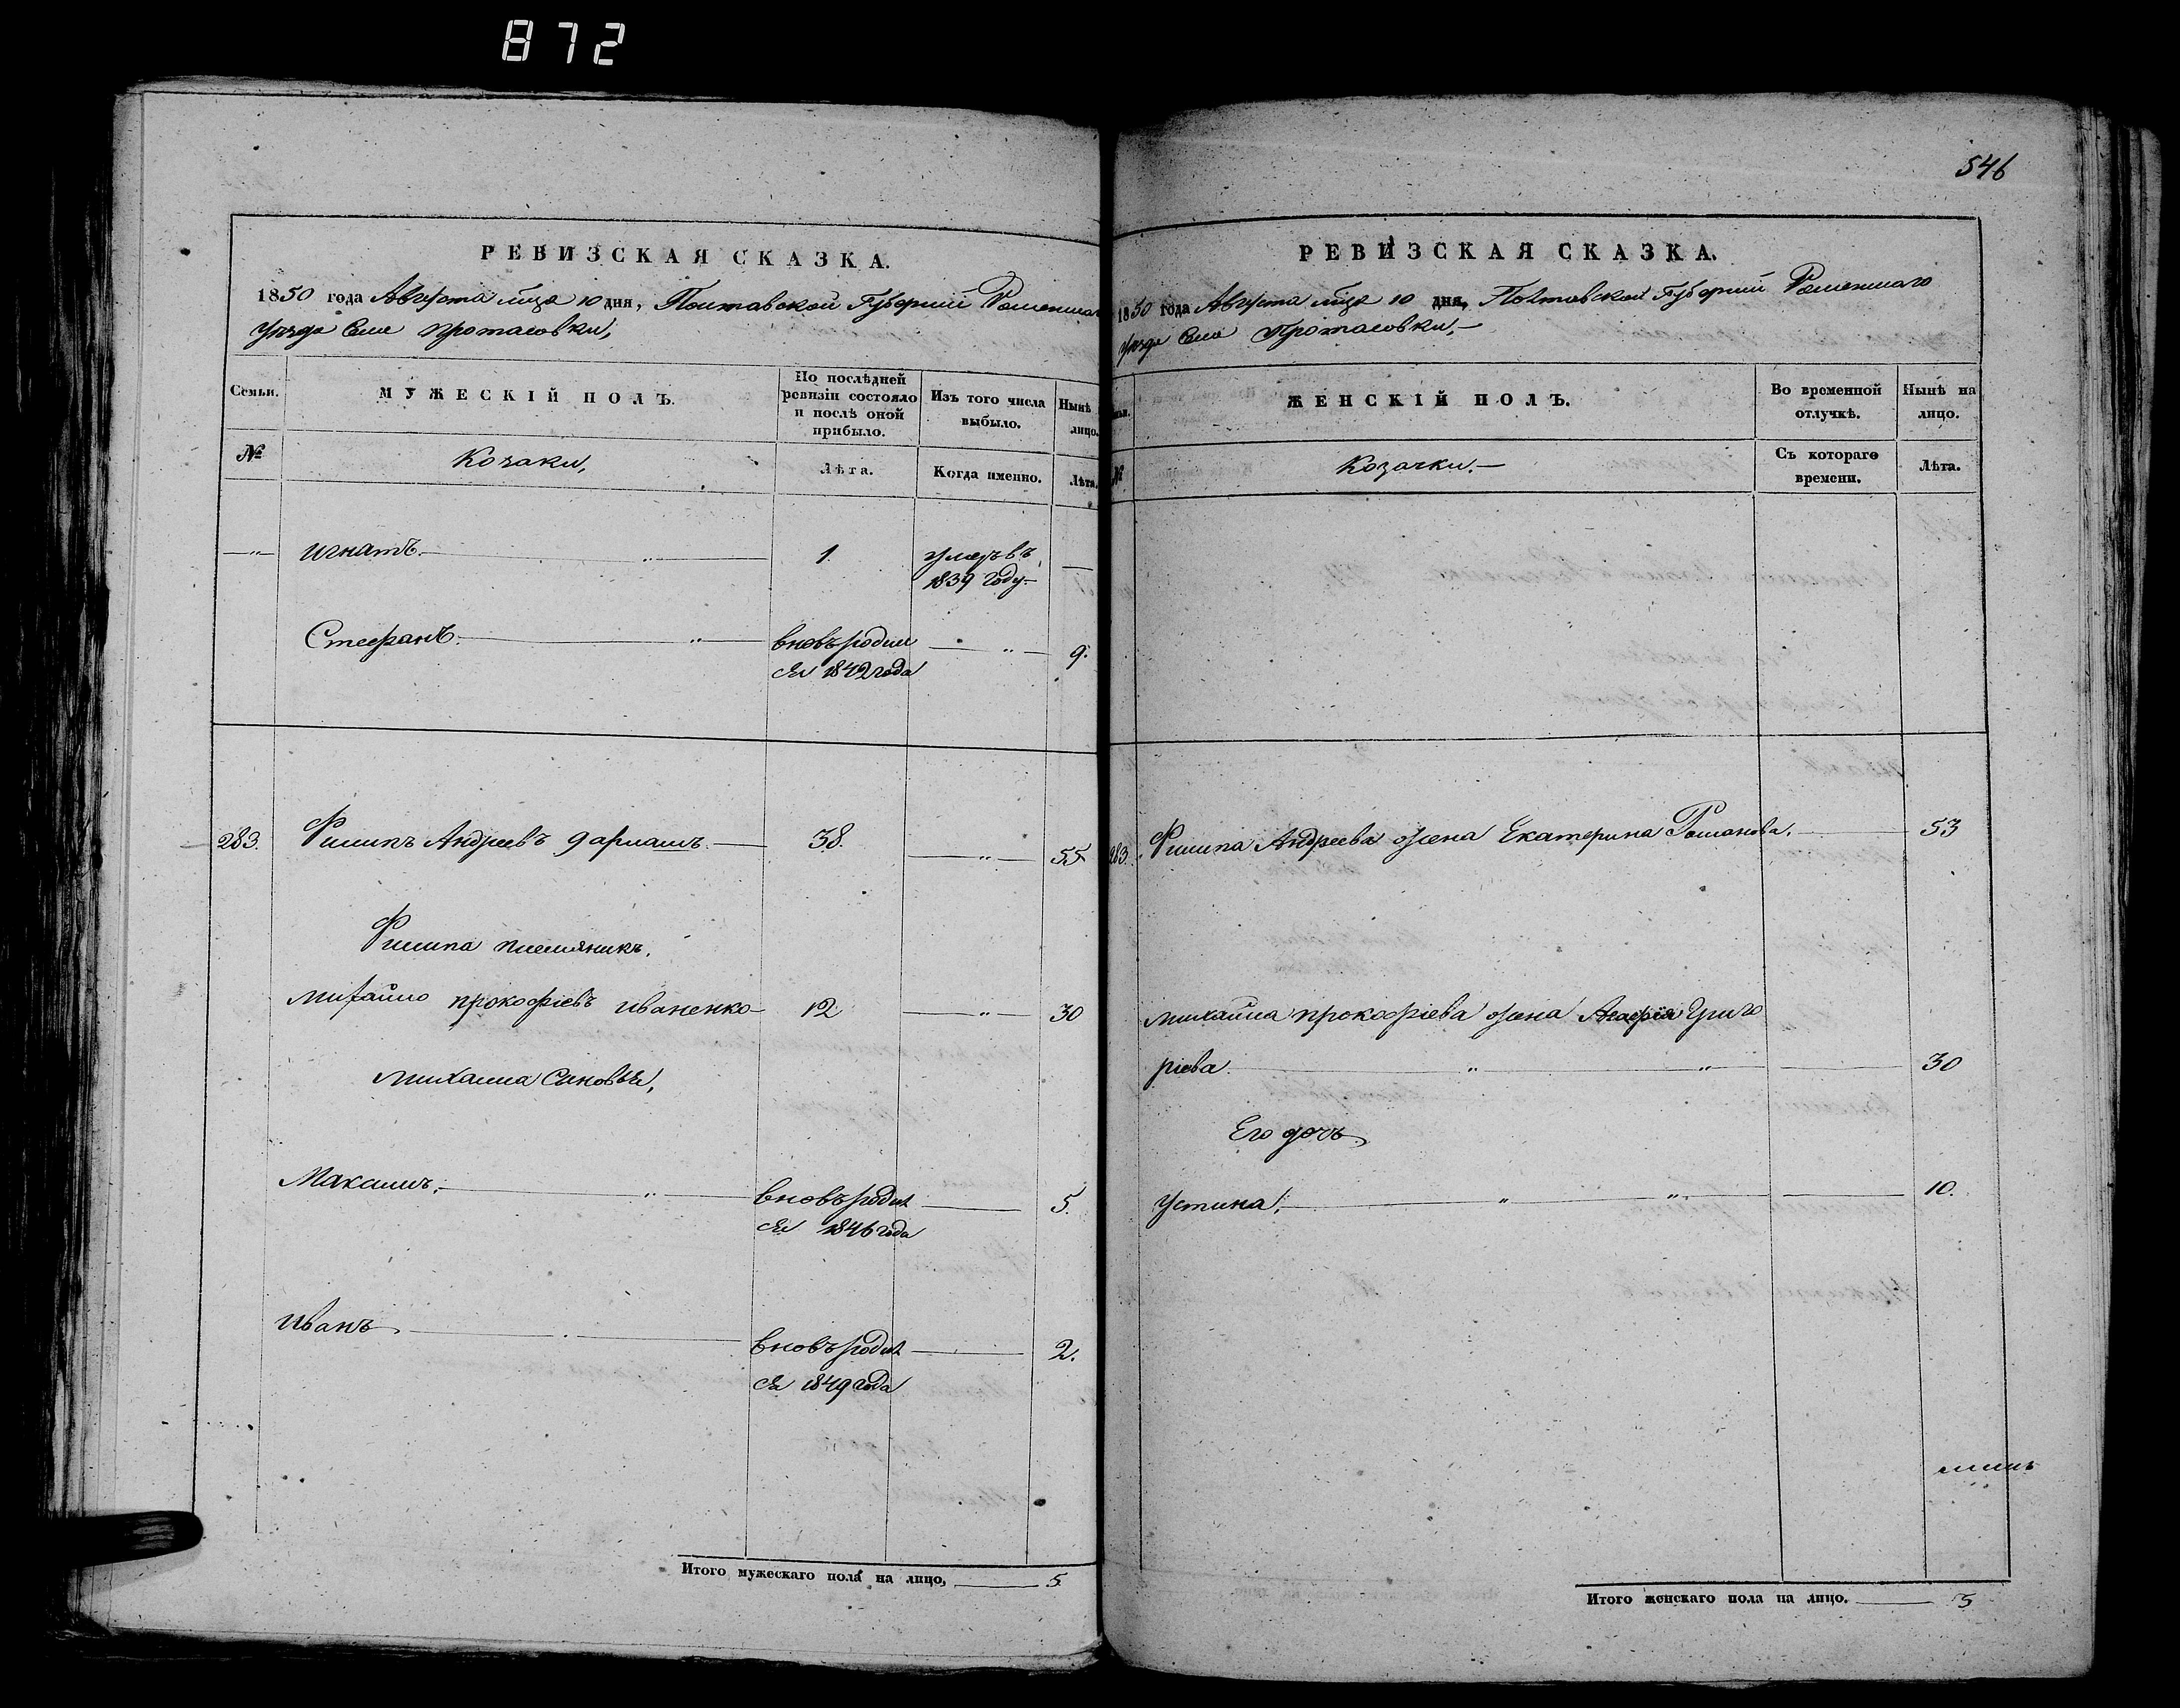 872
РЕВИЗСКАЯ СКАЗКА.
1850 года Августа м͠ца 10 дня, Полтавской Губернии Роменскаго
Уѣзда Села Протасовки,
Семьи.
МУЖЕСКІЙ ПОЛЪ.
По послѣдней ревизіи состояло и послѣ оной прибыло.
Изъ того числа выбыло.
Нынѣ лицо.
№
Козаки,
Лѣта.
Когда именно.
Лѣта.
—"— Игнатъ. 1. умеръ въ
1839 году
Стефанъ. вновь родил — " — 9.
ся 1842 года
283. Филипъ Андреевъ 38. — " — 55
Филипа племяникъ,
Михайло Прокофіевъ Иваненко 12 — " — 30
Михаила Сыновья,
Максимъ. вновь родил 5.
ся 1846 года
Иванъ вновь родил 2.
ся 1849 года
Итого мужескаго пола на лицо, 5
546
РЕВИЗСКАЯ СКАЗКА.
1850 года Августа м͠ца 10 дня, Полтавской Губернии Роменскаго
Уѣзда Села Протасовки,—
ЖЕНСКІЙ ПОЛЪ.
Во временной отлучкѣ.
Нынѣ на лицо.
№
Козачки.—
Съ котораго времени.
Лѣта.
283. Филипа Андреева жена Екатерина Романова. 53
Михайла Прокофіева жена Агафія Григо
ріева 30
Его дочь
Устина, 10.
Итого женскаго пола на лицо. 3